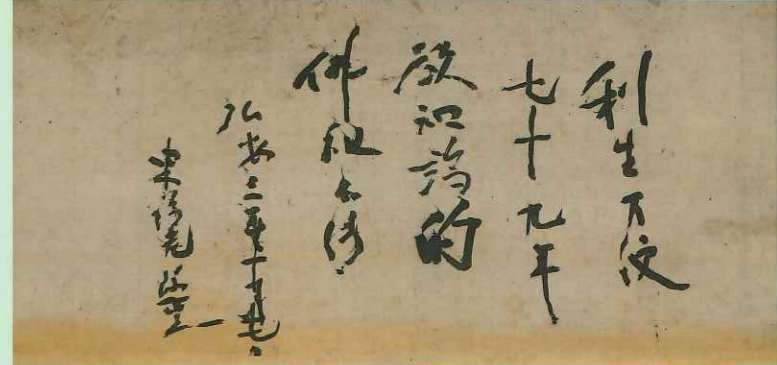 利生方便
七十九年
欲知端的
佛祖不傳
弘安三年十月十七日
東福老珎重